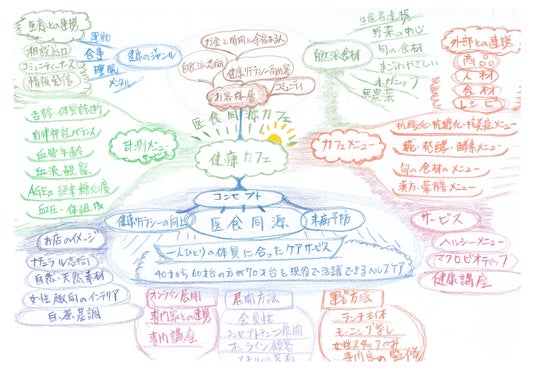 医療との連携
相談窓口
コミュニティナース
情報発信
運動
食事
睡眠
メンタル
健康のジャンル
お金と時間に余裕ある人
自然派志向
健康リテラシー高い客
お客様層
コミュニティ
自然派食材
生産者連携
野菜中心
旬の食材
まごわやさしい
オーガニック
無農薬
外部との連携
商品
人材
食材
レシピ
医食同源カフェ
健康カフェ
計測メニュー
舌診・体質診断
自律神経バランス
血管年齢
血流観察
AGEs 終末糖化度
血圧・体組成
カフェメニュー
抗酸化・抗糖化・抗炎症メニュー
糀・発酵・酵素メニュー
旬の食材のメニュー
漢方・薬膳メニュー
コンセプト
健康リテラシーの向上
医食同源
未病予防
一人ひとりの体質に合ったケアサービス
40才から60才台の方が70才台と現役で活躍できるヘルスケア
お店のイメージ
ナチュラル志向
自然・天然素材
女性趣向のインテリア
白・茶基調
サービス
ヘルシーメニュー
マクロビオティック
健康講座
オンライン展開
専門家との連携
専門講座
展開方法
会員性
コンセプトチェーン展開
オンライン顧客
運営方法
ランチ主体
モーニング禁し
女性スタッフで
専門家の監修